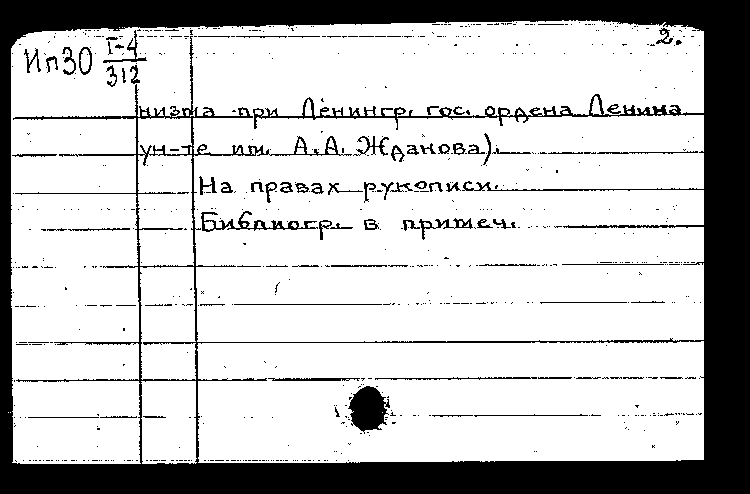 2.
Ип30 I-4/312
низма при Ленингр. гос. ордена Ленина
ун-те им. А.А. Жданова).
На правах рукописи.
Библиогр. в примеч.